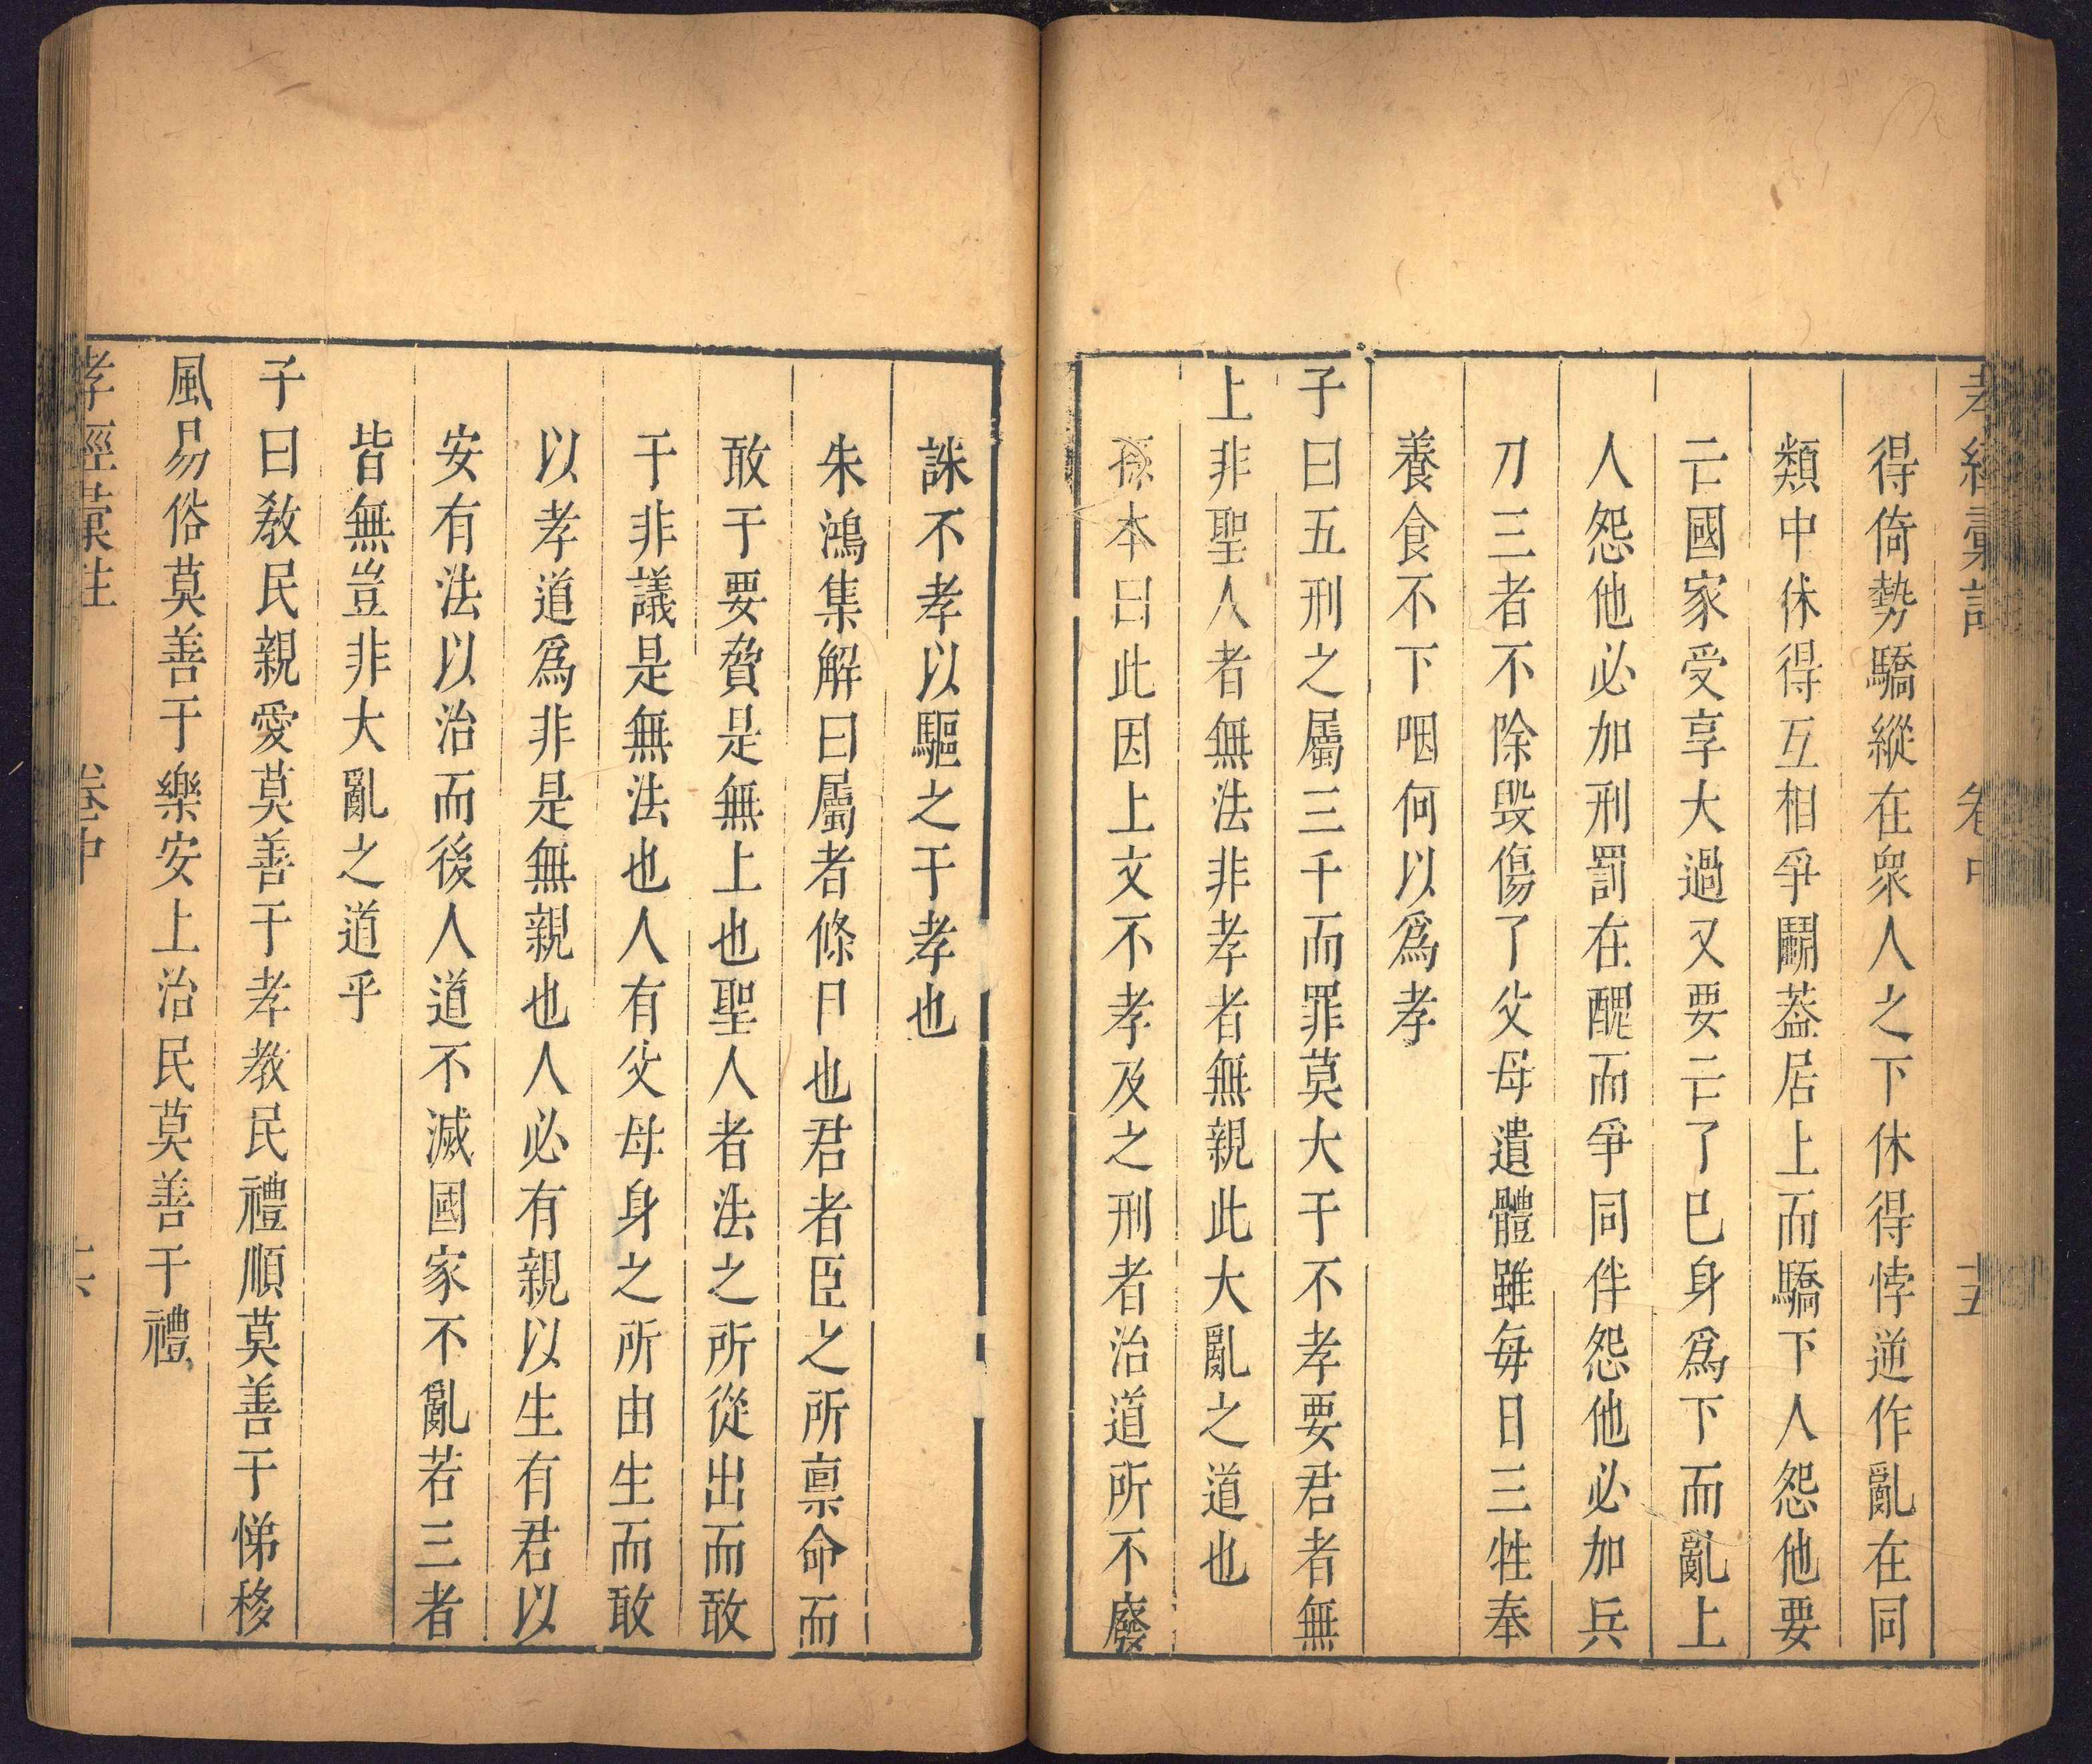 孝經彙註 卷中 十五
得倚勢驕縱在衆人之下休得悖逆作亂在同
類中休得互相爭鬬葢居上而驕下人怨他要
亡國家受享大過又要亡了巳身爲下而亂上
人怨他必加刑罰在醜而爭同伴怨他必加兵
刀三者不除毀傷了父母遺體雖每日三牲奉
養食不下咽何以爲孝
子曰五刑之屬三千而罪莫大于不孝要君者無
上非聖人者無法非孝者無親此大亂之道也
孫本曰此因上文不孝及之刑者治道所不廢
誅不孝以驅之于孝也
朱鴻集解曰屬者條目也君者臣之所稟命而
敢于要脅是無上也聖人者法之所從出而敢
于非議是無法也人有父母身之所由生而敢
以孝道爲非是無親也人必有親以生有君以
安有法以治而後人道不滅國家不亂若三者
皆無豈非大亂之道乎
子曰教民親愛莫善于孝教民禮順莫善于悌移
風易俗莫善于樂安上治民莫善于禮
孝經彙註 卷中 十六